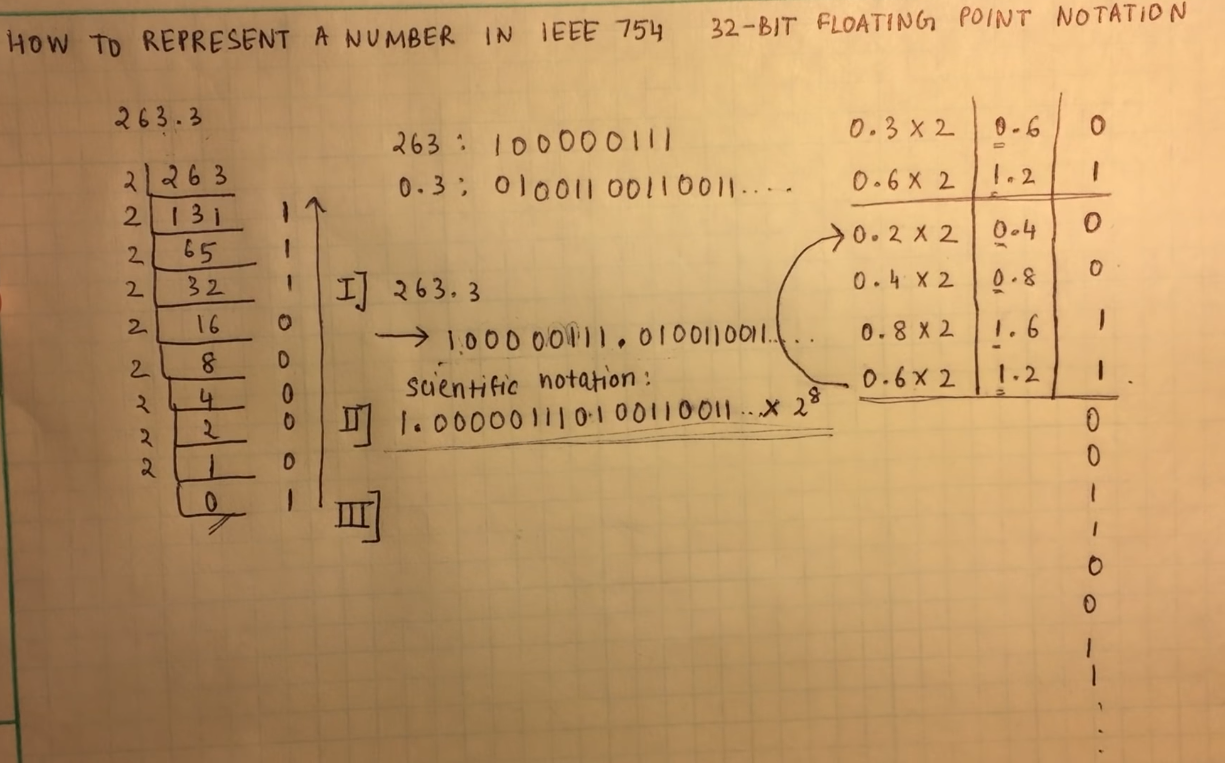 HOW TO REPRESENT A NUMBER IN IEEE 754 32-BIT FLOATING POINT NOTATION
263.3
2 263
2 131 1
2 65 1
2 32 1
2 16 0
2 8 0
2 4 0
2 2 0
2 1 0
0 1
263 : 100000111
0.3 : 01001100110011....
I] 263.3
→ 100000111.0100110011....
scientific notation:
II] 1.000001110100110011... × 2^8
III]
0.3 × 2 0.6 0
0.6 × 2 1.2 1
0.2 × 2 0.4 0
0.4 × 2 0.8 0
0.8 × 2 1.6 1
0.6 × 2 1.2 1
0
0
1
1
0
0
1
1
.
.
.